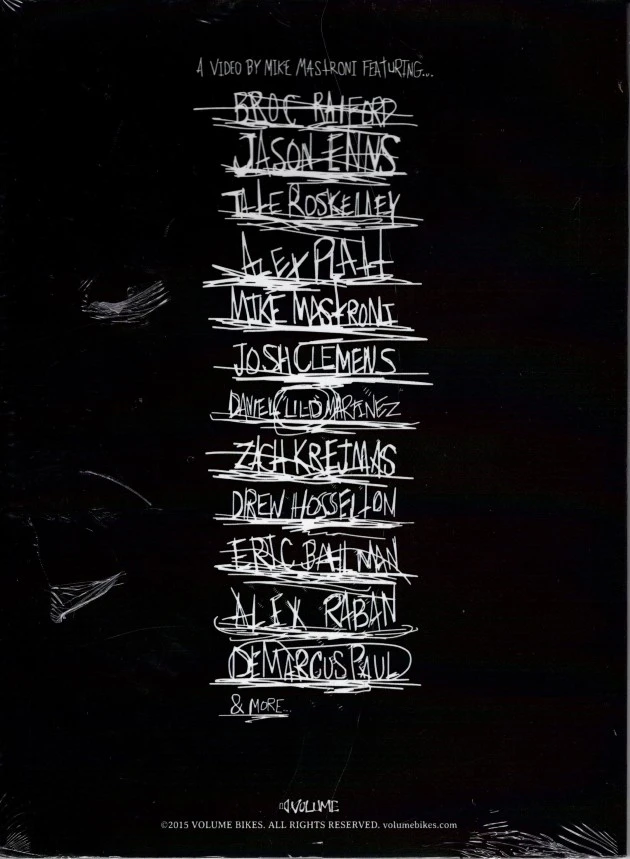 A VIDEO BY MIKE MASTRONI FEATURING...
BROC RAIFORD
JASON ENNS
TATE ROSKELLEY
ALEX PLATT
MIKE MASTRONI
JOSH CLEMENS
DANIEL "LIL D" MARTINEZ
ZACH KREJMAS
DREW HOSSELTON
ERIC BAHLMAN
ALEX RABAN
DEMARCUS PAUL
& MORE...
VOLUME
©2015 VOLUME BIKES. ALL RIGHTS RESERVED. volumebikes.com